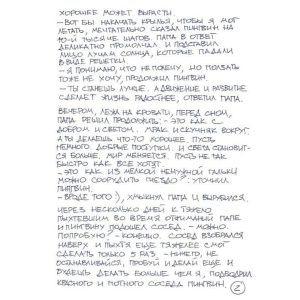 хорошее может вырасти.
- Вот бы накачать крылья, чтобы я мог
летать, мечтательно сказал пингвин на
10-й тысяче шагов. Папа в ответ
деликатно промолчал и подставил
лицо лучам солнца, которые падали
в виде решётки.
- Я понимаю, что не получу, но ползать
тоже не хочу, продолжил пингвин.
- Ты станешь лучше. А движение и развитие
сделает жизнь радостнее, ответил папа.
Вечером, лёжа на кровати, перед сном,
папа решил продолжить: - это как с
добром и светом. Мрак и скунжак вокруг,
а ты делаешь что-то хорошее. Пусть
немного. Добрые поступки. И света становит-
ся больше, мир меняется. Пусть не так
быстро как все хотят.
- Это как из мелкой ненужной гальки
можно соорудить гнездо? - уточнил
пингвин.
- Вроде того), хмыкнул папа и вырубился.
Через несколько дней к тяжело
пыхтевшим во время отжиманий папе
и пингвину подошел сосед. - Можно
попробую? - Конечно. Сосед взобрался
наверх и пыхтя ещё тяжелее смог
сделать только 5 раз. - Ничего, не
останавливайся, пробуй и делай ещё и
будешь делать больше чем я, подбодрил
красного и потного соседа пингвин.
2